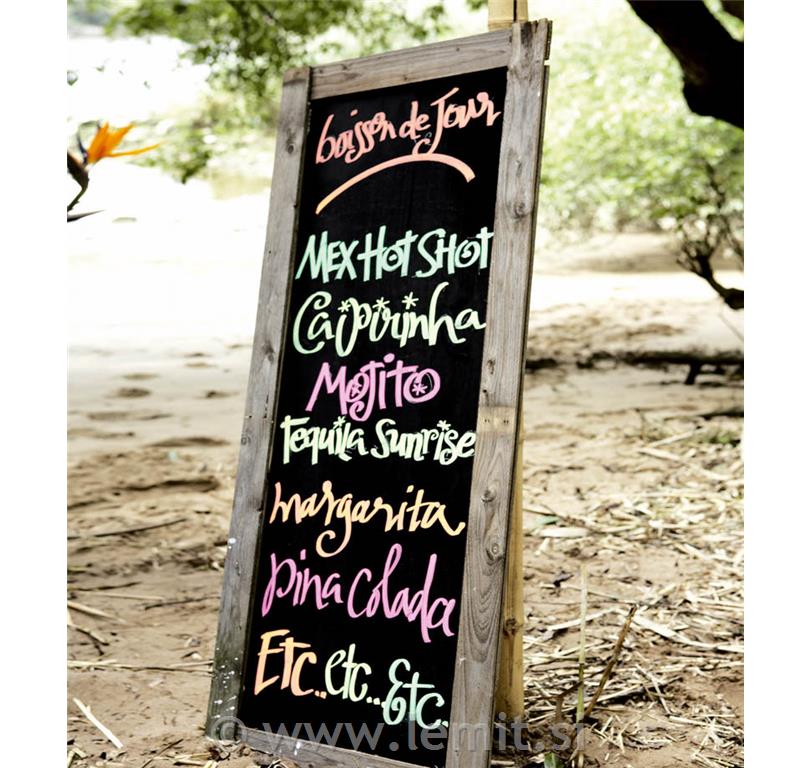 boisson de Jour
MEX Hot SHOT
Caipirinha
Mojito
Tequila Sunrise
margarita
pina Colada
Etc.. etc... Etc..
© www.lemit.si